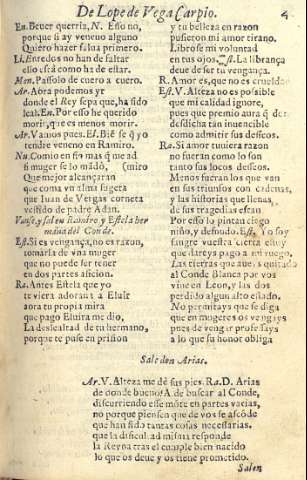 De Lope de Vega Carpio. 4
En. Beuer querria, N. Esso no,
porque si ay veneno alguno
Quiero hazer salua primero.
Li. Enredos no han de faltar
ello està como ha de estar.
Mon. Passolo de cuero a cuero.
Ar. Aora podemos yr
donde el Rey sepa que, ha sido
leal. En. Por esso he querido
morir, que es menos morir.
Ar. Vamos pues. El. Biẽ se q̃ yo
tendre veneno en Ramiro.
Nu. Comio en fin mas q̃ me ad
si muger se lo mãdò, (miro
Que mejor alcançaran
que coma vn alma sugeta
que Iuan de Vergas corneta
vestido de padre Adan.
Vase, y salen Ramiro, y Estela her
mana del Conde.
Est. Si es vengança, no es razon,
tomarla de vna muger
que no puede ser tener
en dos partes aficion.
Ra. Antes Estela que yo
te viera adorar a Eluir
aora tu propia mira
que pago Eluira me dio,
La deslealtad de tu hermano,
porque te puse en prision
y tu belleza en razon
pusieron mi amor tirano.
Librose mi voluntad
en tus ojos. Est. La librança
deue de ser tu vengança.
R. Amor es, que no es crueldad
Est. V. Alteza no es possible
que mi calidad ignore,
pues que premio aura q̃ dore
desdicha tan inuencible
como admitir sus dessicos.
Ra. Si amor tuuiera razon
no fueran como lo son
tanto sus locos desseos.
Menos fueran los que van
en sus triunfos con cadenas,
y las historias que llenas
de sus tragedias estan
Por esso lo pintan ciego
niño, y desnudo. Est. Yo soy
sangre vuestra cierta estoy
que dareys pago a mi ruego,
Las tierras que aueis quitado
al Conde Blanca por vos
viue en Leon, y las dos
perdido algun alto estado,
No permitays que se diga
que en mugeres os vengays
pues de vengar professays
a lo que su honor obliga
Sale don Arias.
Ar. V. Alteza me dè sus pies. Ra. D. Arias
de donde bueno? A de buscar al Conde,
discurriendo esse mõte en partes varias,
no porque piensen que de vos se ascõde
que han sido tantas cosas necessarias.
que la discul. ad misma responde
la Reyna tras el cumple bien nacido
lo que os deue y os tiene prometido.
Salen